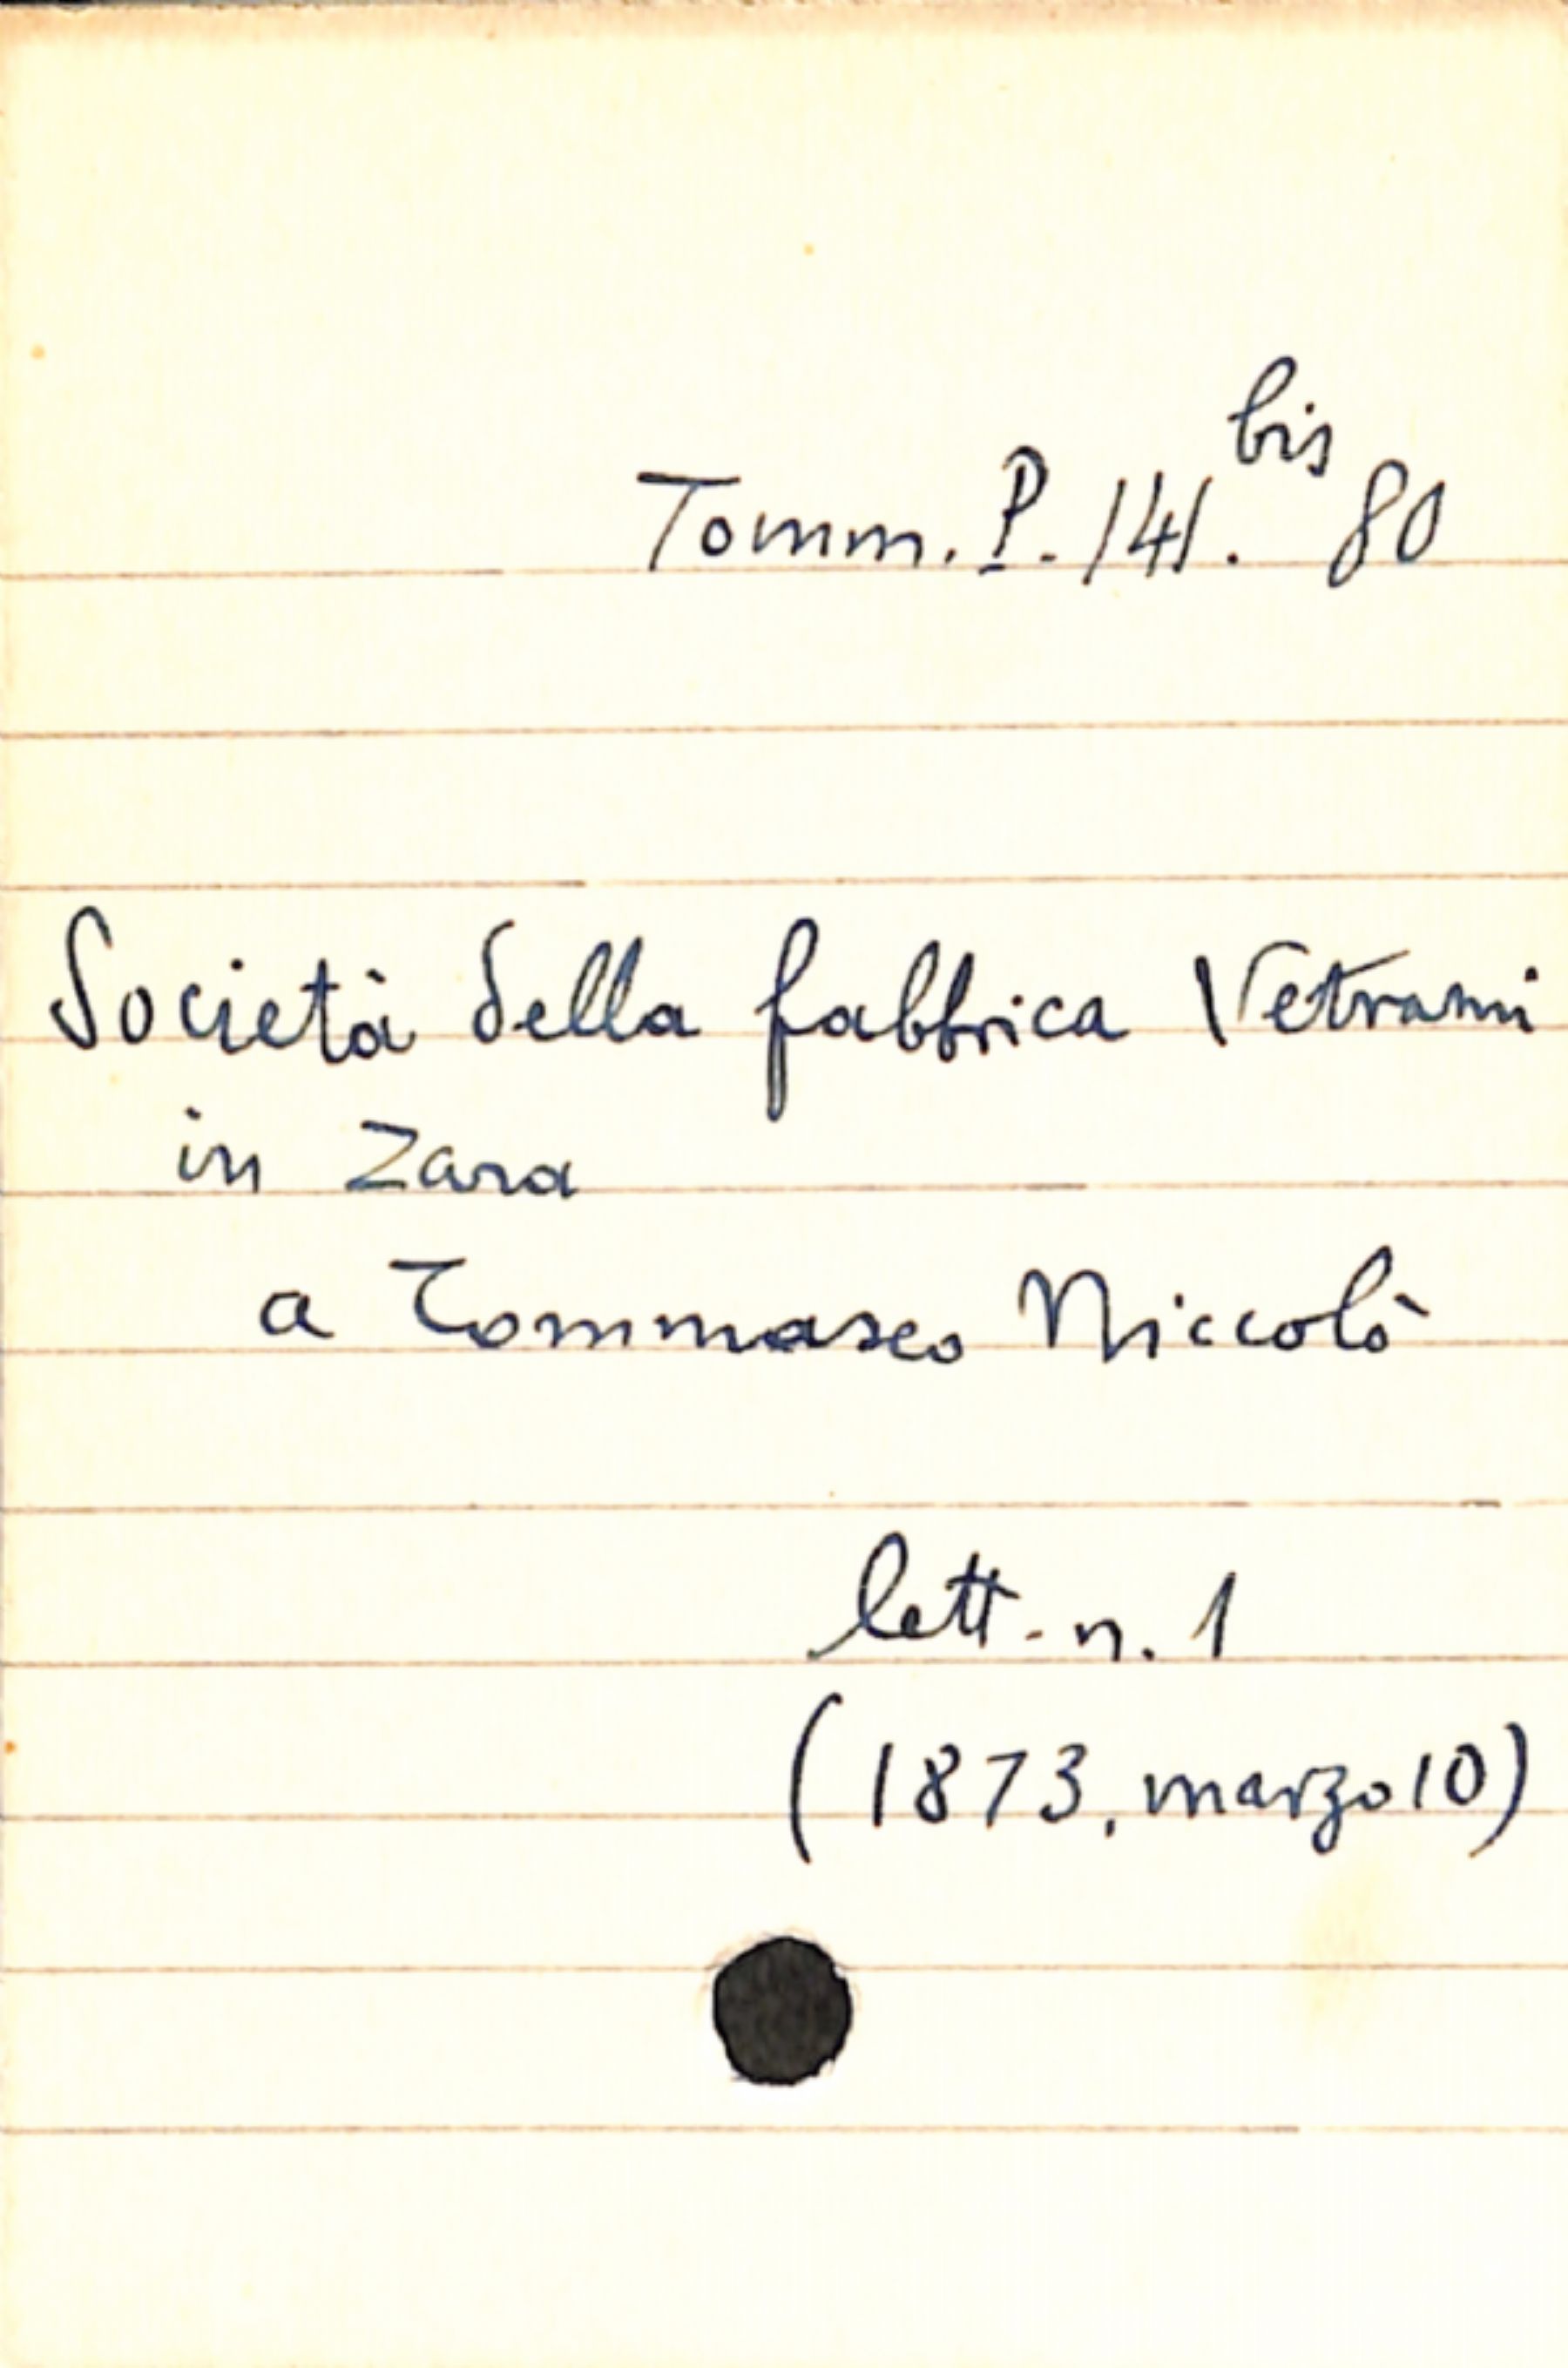 Tomm. P. 141. bis 80
Società della fabbrica Vetrami
in Zara
a Tommaseo Niccolò
lett. n. 1
(1873, marzo 10)